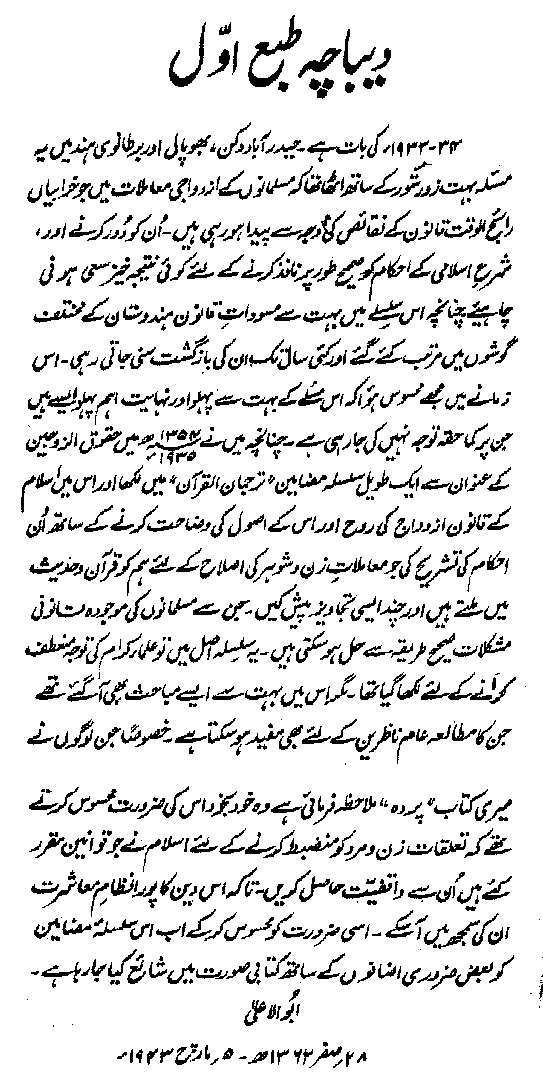 دیباچہ طبع اوّل
۳۴-۱۹۳۳ء کی بات ہے۔ حیدرآباد دکن، بھوپال اور برطانوی ہند میں یہ
مسئلہ بہت زور شور کے ساتھ اٹھا تھا کہ مسلمانوں کے ازدواجی معاملات میں جو خرابیاں
رائج الوقت قانون کے نقائص کی وجہ سے پیدا ہو رہی ہیں۔ اُن کو دُور کرنے اور،
شرعِ اسلامی کے احکام کو صحیح طور پر نافذ کرنے کے لئے کوئی نتیجہ خیز سعی ہونی
چاہیئے چنانچہ اس سلسلے میں بہت سے مسوداتِ قانون ہندوستان کے مختلف
گوشوں میں مرتب کئے گئے اور کئی سال تک ان کی بازگشت سنی جاتی رہی۔ اس
زمانے میں مجھے محسوس ہوا کہ اس مسئلے کے بہت سے پہلو اور نہایت اہم پہلو ایسے ہیں
جن پر کما حقہ توجہ نہیں کی جا رہی ہے۔ چنانچہ میں نے ۱۳۵۴ھ ۱۹۳۵ء میں حقوق الزوجین
کے عنوان سے ایک طویل سلسلہ مضامین "ترجمان القرآن" میں لکھا اور اس میں اسلام
کے قانون ازدواج کی روح اور اس کے اصول کی وضاحت کرنے کے ساتھ اُن
احکام کی تشریح کی جو معاملاتِ زن و شوہر کی اصلاح کے لئے ہم کو قرآن و حدیث
میں ملتے ہیں اور چند ایسی تجاویز پیش کیں۔ جن سے مسلمانوں کی موجودہ قانونی
مشکلات صحیح طریقہ سے حل ہو سکتی ہیں۔ یہ سلسلہ اصل میں تو علماء کرام کی توجہ منعطف
کرانے کے لئے لکھا گیا تھا۔ مگر اس میں بہت سے ایسے مباحث بھی آ گئے تھے
جن کا مطالعہ عام ناظرین کے لئے بھی مفید ہو سکتا ہے۔ خصوصاً جن لوگوں نے
میری کتاب "پردہ" ملاحظہ فرمائی ہے وہ خود بخود اس کی ضرورت محسوس کرتے
تھے کہ تعلقات زن و مرد کو منضبط کرنے کے لئے اسلام نے جو قوانین مقرر
کئے ہیں اُن سے واقفیت حاصل کریں۔ تاکہ اس دین کا پورا نظامِ معاشرت
ان کی سمجھ میں آ سکے۔ اسی ضرورت کو محسوس کرکے اب اس سلسلۂ مضامین
کو بعض ضروری اضافوں کے ساتھ کتابی صورت میں شائع کیا جا رہا ہے۔
ابُو الاعلیٰ
۲۸ صفر ۱۳۶۲ھ - ۵ مارچ ۱۹۴۳ء